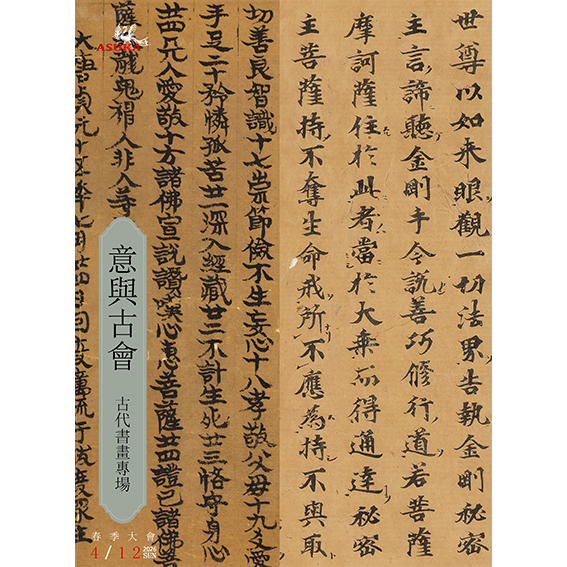 世尊以如来眼觀一切法界告執金剛秘密
主言諦聽金剛手今說善巧修行道若菩薩
摩訶薩住於此者當於大乘而得通達秘密
主菩薩持不奪生命戒所不應為持不與取
切善良智識十七崇節儉不生妄心十八孝敬父母十九友愛
手足二十矜憐孤苦廿一深入經藏廿二不計生死廿三恪守身心
人愛敬十方諸佛宣說讚嘆心惠菩薩廿四證已諸佛菩
薩龍鬼神人非人等
大唐貞元十五年七月廿四日
ASUKA
意與古會
古代書畫專場
春季大會
4/12 2026 SUN